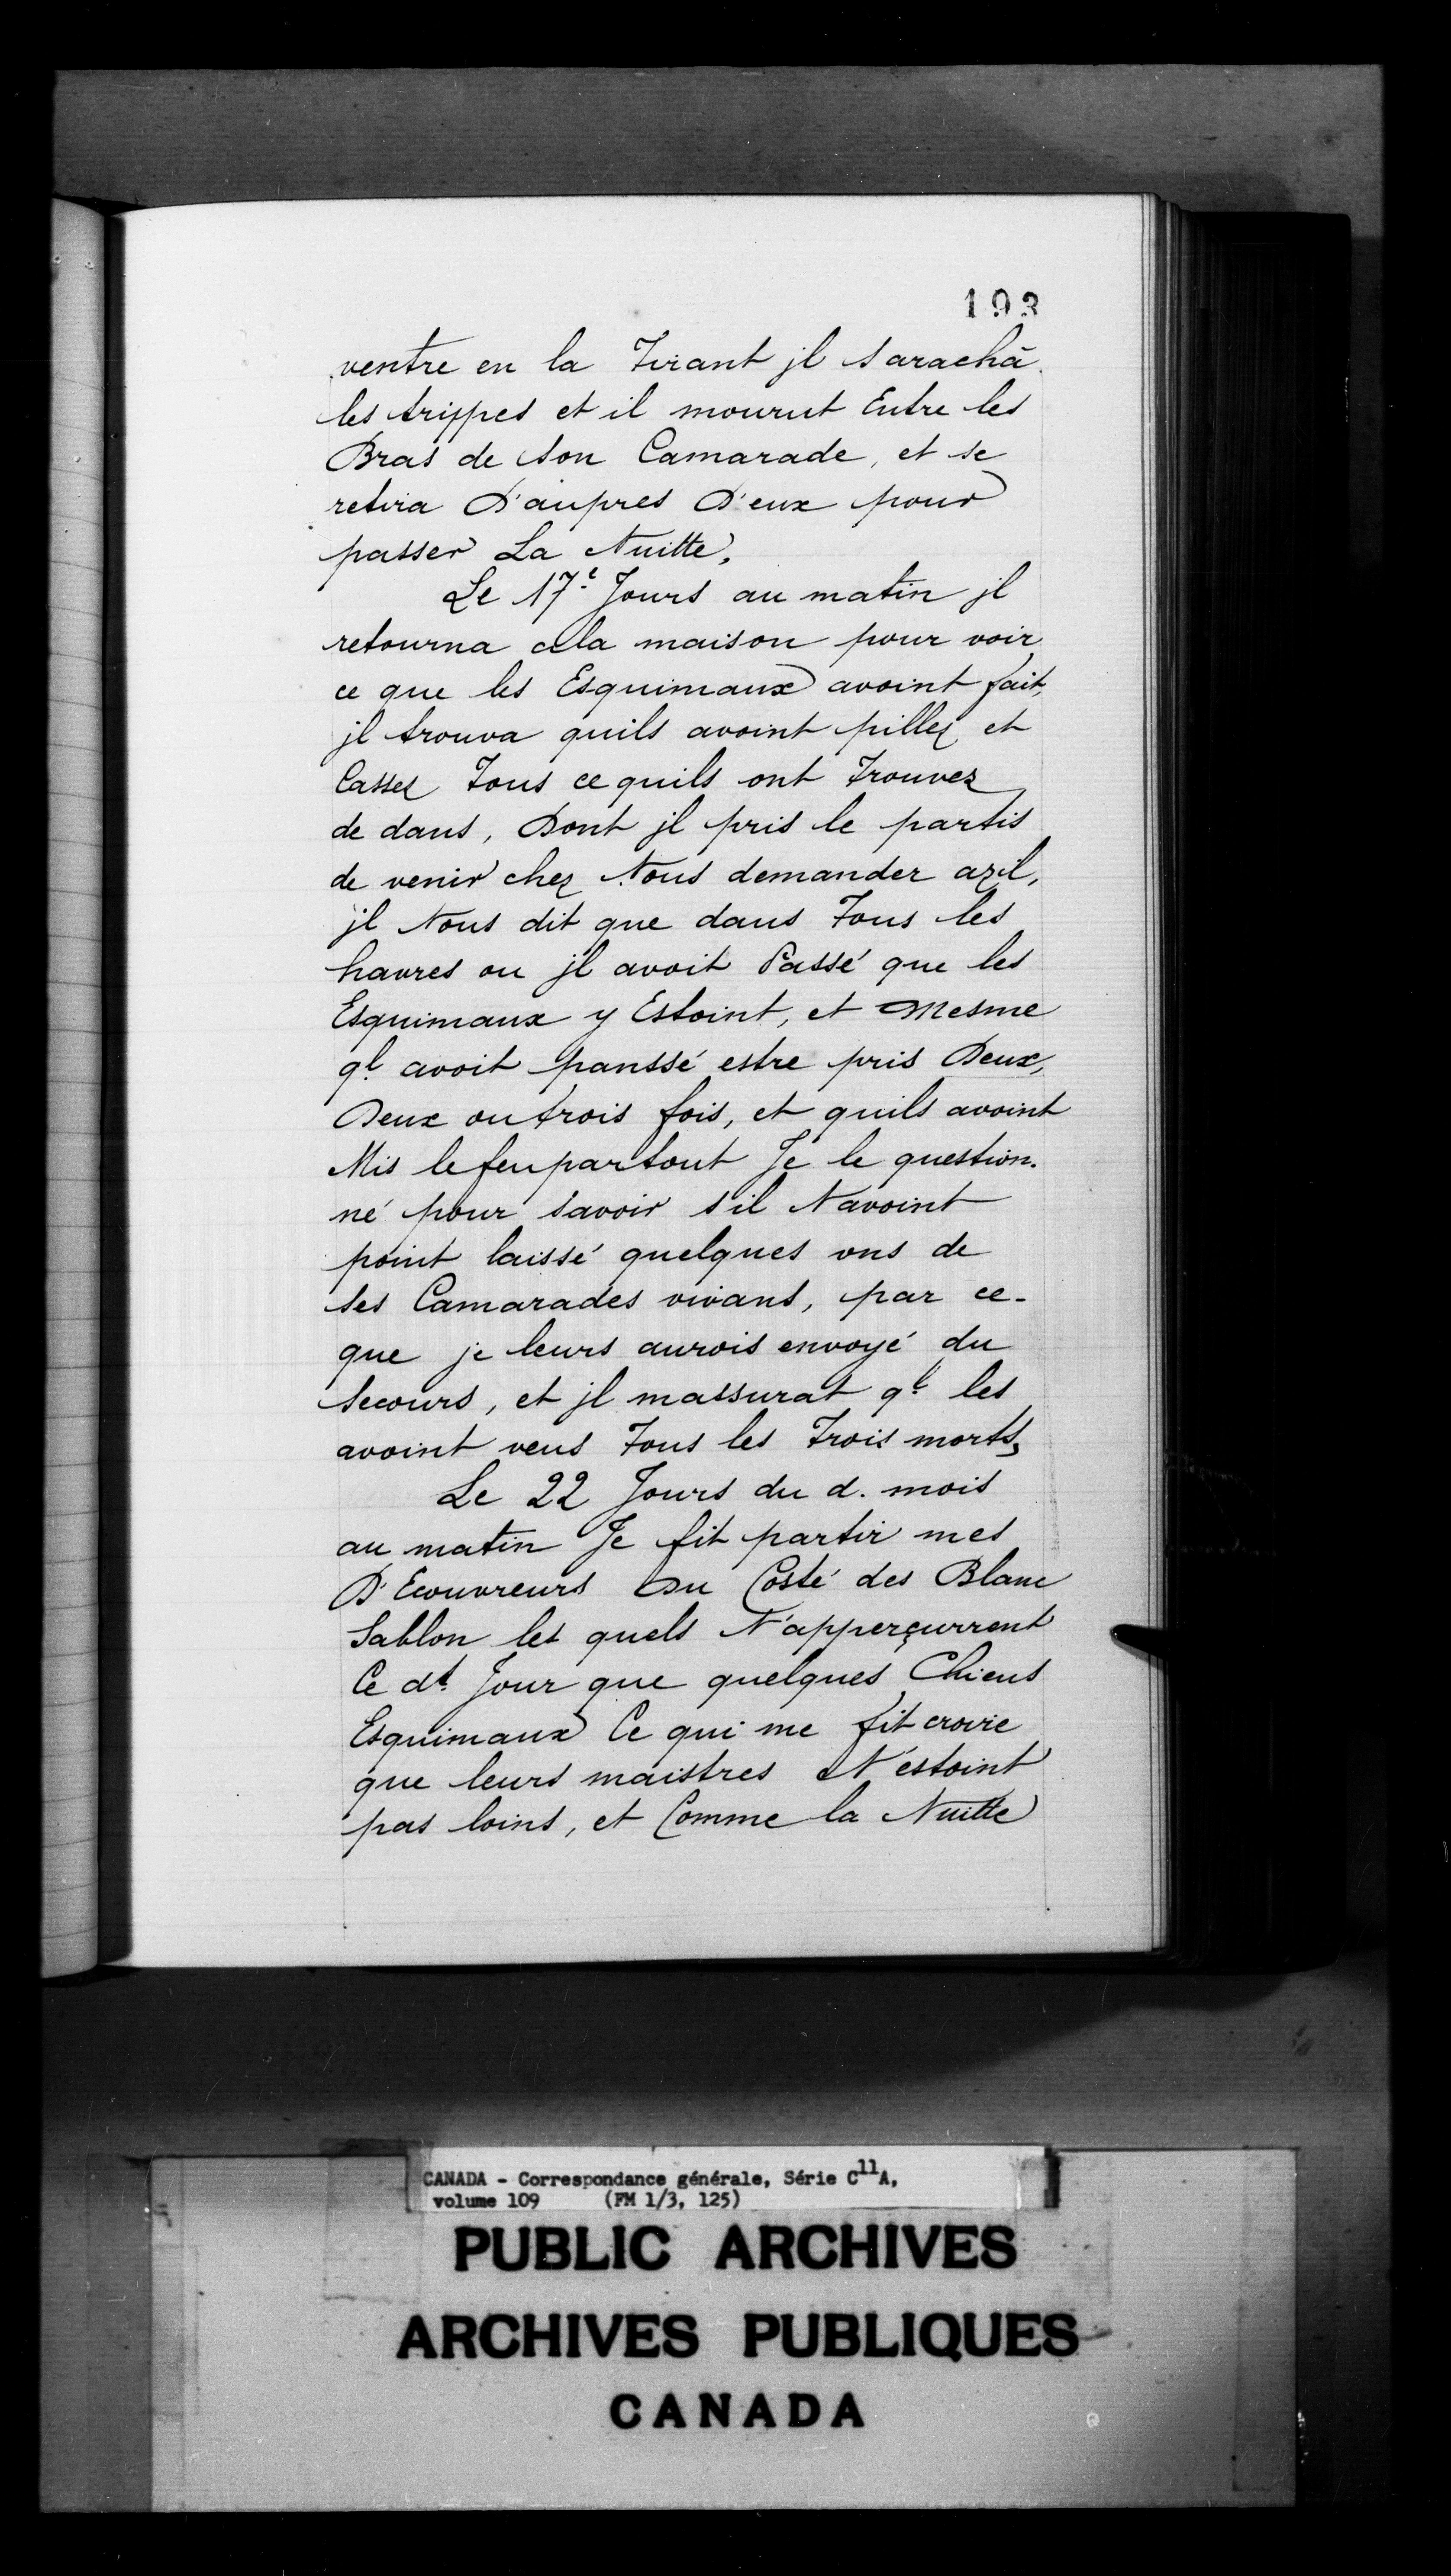 193
ventre en la Tirant jl sarachâ
les trippes et il mourut Entre les
Bras de son Camarade, et se
retira D'aupres D'eux pour
passer La Nuitte,
Le 17e Jours au matin jl
retourna ala maison pour voir
ce que les Esquimaux avoint fait,
jl trouva quils avoint pillez et
Cassez Tous ce quils ont Trouvez
de dans, Dont jl pris le partis
de venir chez Nous demander azil,
jl Nous dit que dans Tous les
havres ou jl avoit Passé que les
Esquimaux y Estoint, et Mesme
ql avoit panssé estre pris Deux,
Deux ou trois fois, et quils avoint
Mis le feu partout Je le question-
né pour savoir s'il Navoint
point laissé quelques vns de
ses Camarades vivans, par ce-
que je leurs aurois envoyé du
secours, et jl massurat ql les
avoint veus Tous les Trois morts,
Le 22 Jours du d. mois
au matin Je fit partir mes
D'Ecouvreurs Du Costé des Blanc
Sablon les quels N'apperçurrent
Ce dt Jour que quelques Chiens
Esquimaux Ce qui me fit croire
que leurs maistres N'estoint
pas loins, et Comme la Nuitte
CANADA - Correspondance générale, Série C11A,
volume 109 (FM 1/3, 125)
PUBLIC ARCHIVES
ARCHIVES PUBLIQUES
CANADA